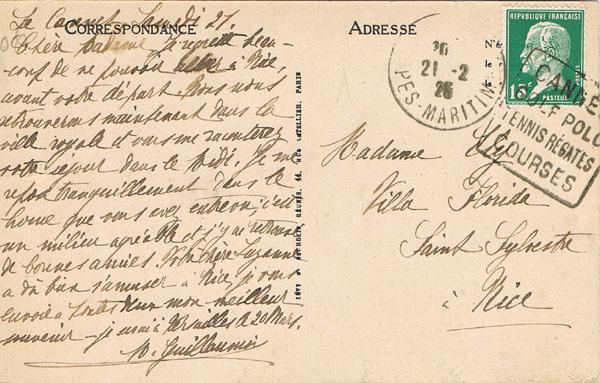 CORRESPONDANCE
Le Cannet Samedi 21.
Chère Madame, Je regrette beau-
coup de ne pouvoir aller à Nice,
avant votre départ. Nous nous
retrouverons maintenant dans la
ville royale et vous me raconterez
votre séjour dans le Midi. Je me
repose tranquillement dans le
home que vous avez entrevu, c'est
un milieu agréable et j'y ai retrouvé
de bonnes amies. Votre chère Suzanne
a dû bien s'amuser à Nice, je vous
envoie à toutes deux mon meilleur
souvenir - je serai à Versailles le 20 Mars.
M. Guillaumin
LÉVY & NEURDEIN RÉUNIS, 44, RUE LETELLIER, PARIS
ADRESSE
Madame
Villa Florida
Saint Sylvestre
à Nice
21-2
26
PES-MARITIM
RÉPUBLIQUE FRANÇAISE
15c
PASTEUR
POSTES
CANNES
GOLF POLO
TENNIS RÉGATES
COURSES